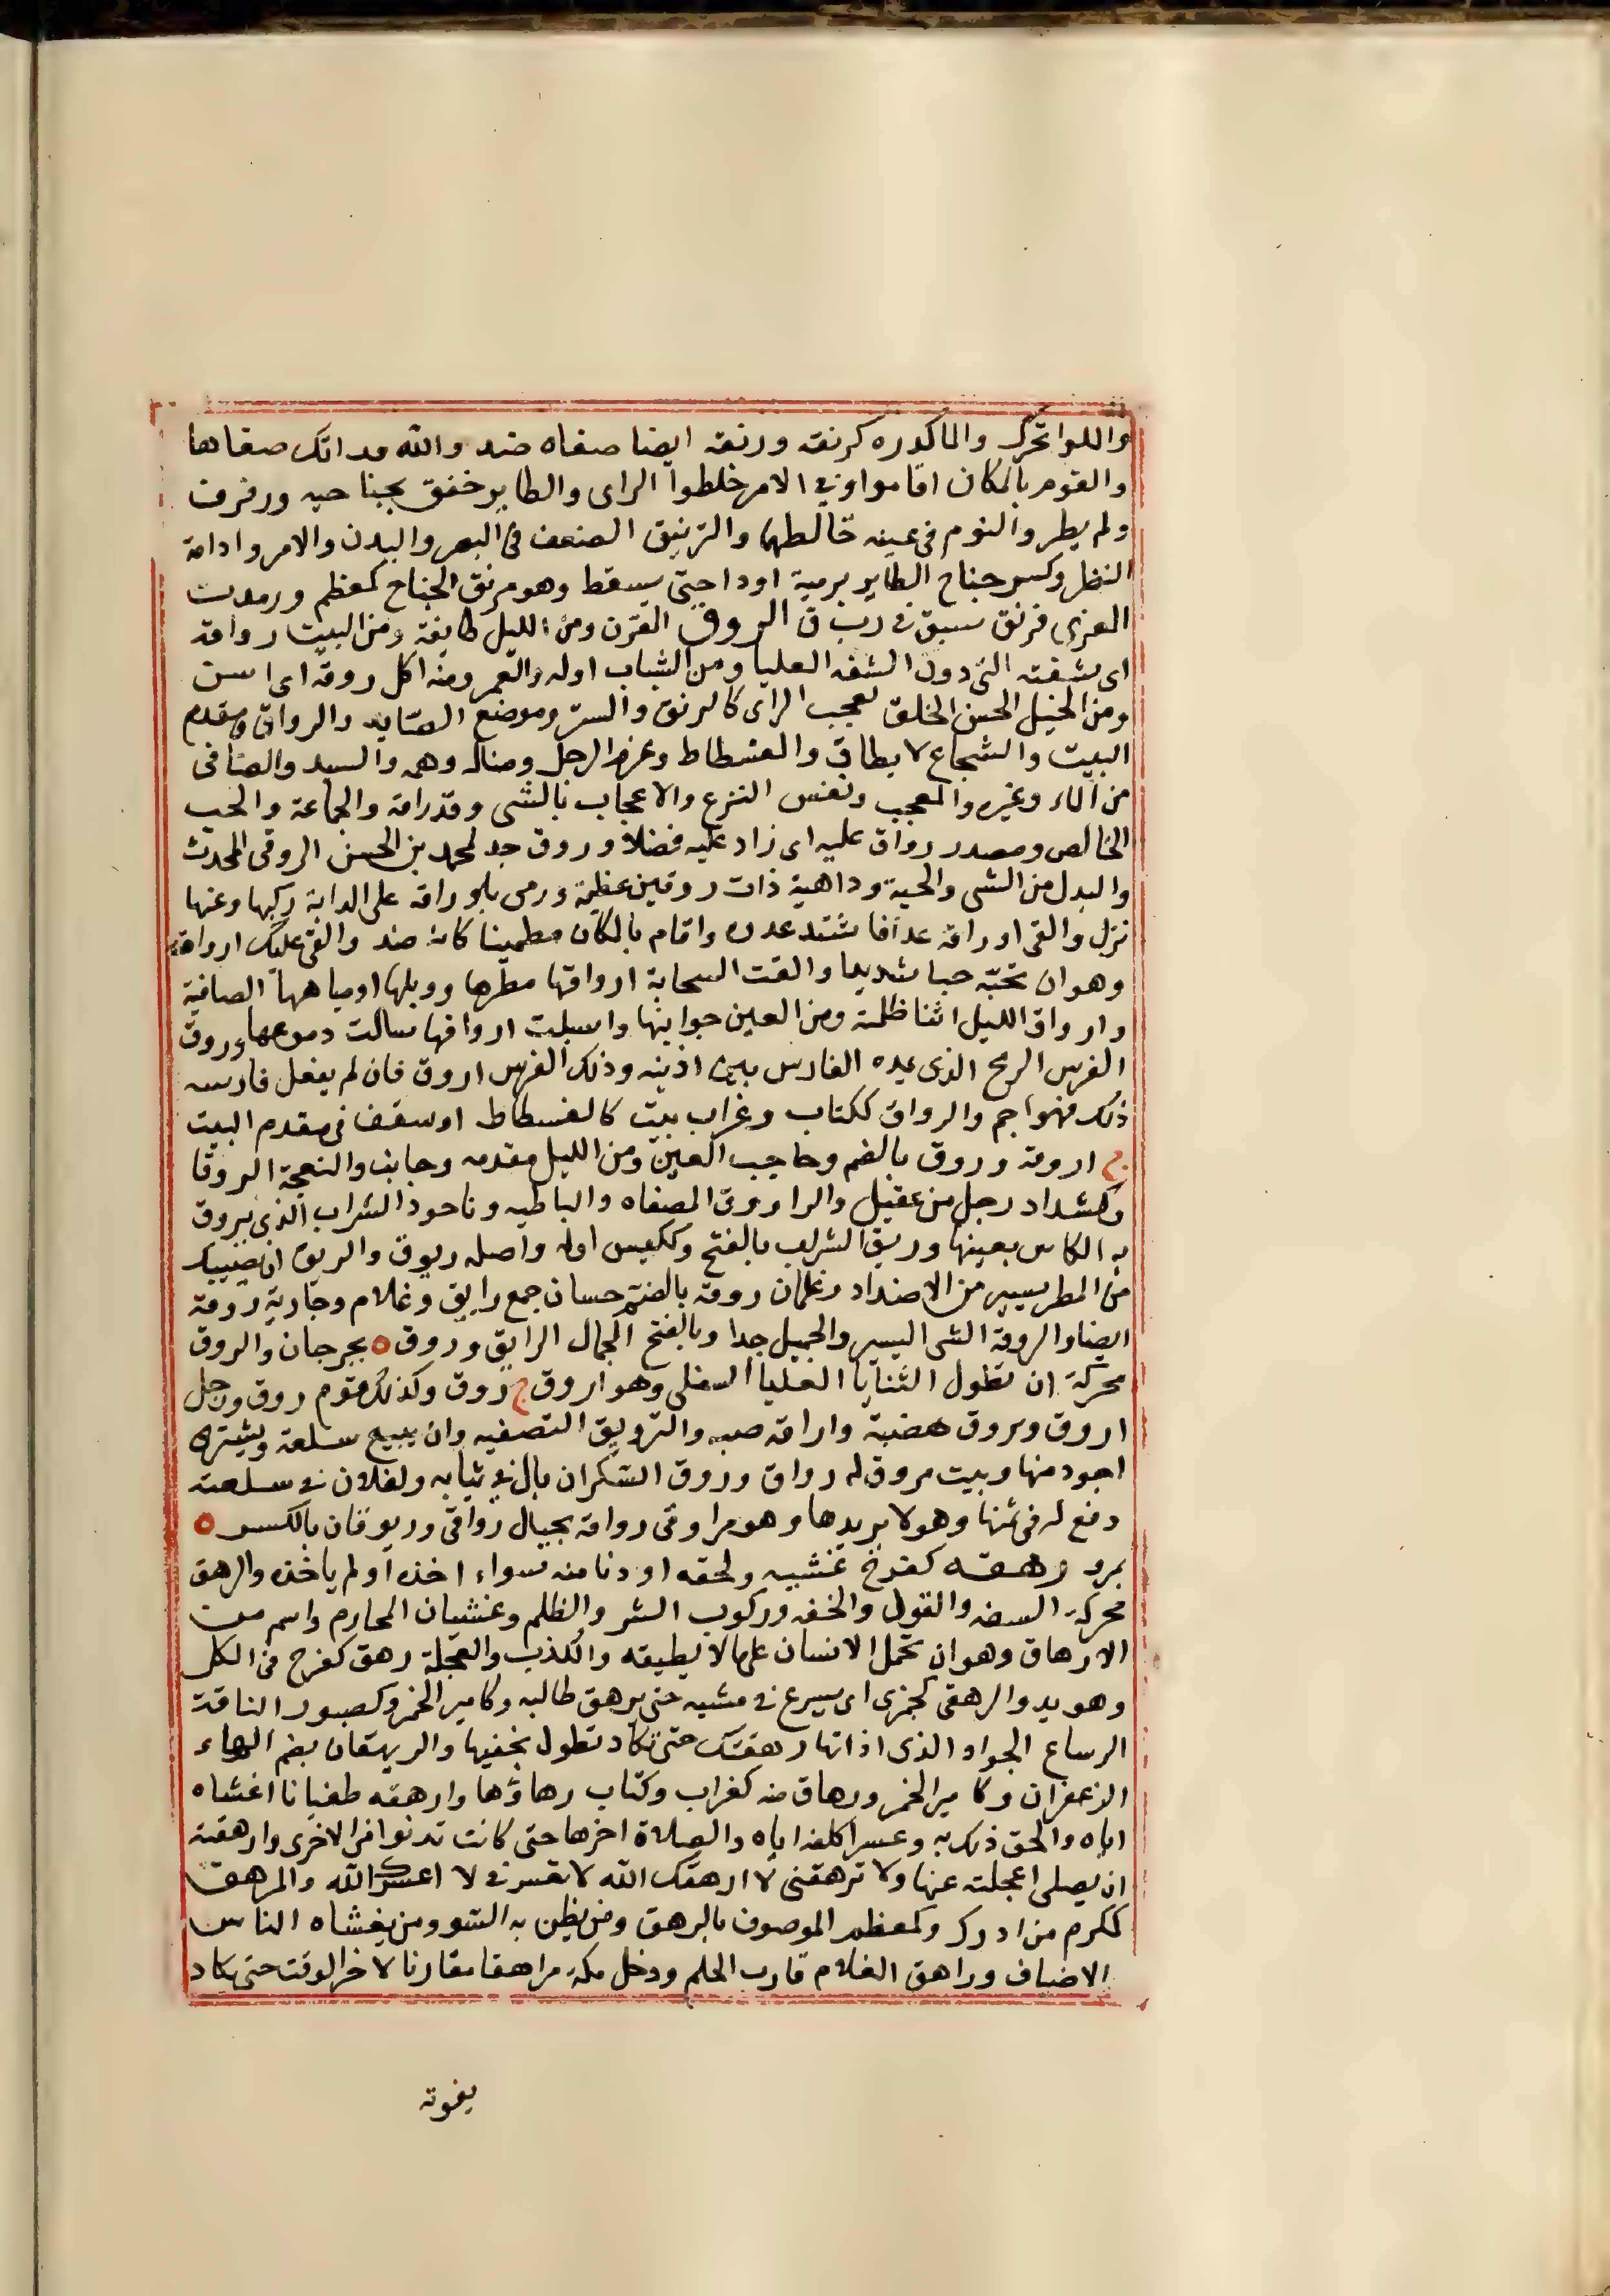 واللوا تحرك والماكدره كرنقه ورنقه ايضا صفاه ضد والله قذاتك صفاها
والقوم بالمكان اقاموا وفي الامر خلطوا الراى والطاير خفق بجناحيه ورفرف
ولم يطر والنوم فى عينه خالطها والترنيق الضعف فى البصر والبدن والامر وادامة
النظر وكسر جناح الطاير برمية اوداحتى يسقط وهو مرنق الجناح كمعظم ورمدت
المعزى فرنق سبق في رب ق الروق القرن ومن الليل طايفة ومن البيت رواقه
اى شقته التى دون الشقه العليا ومن الشباب اوله والعمر ومنه اكل روقه اى اسن
ومن الخيل الحسن الخلق تعجب الراى كالرنق والستر وموضع الصايد والرواق ومقدم
البيت والشجاع لا يطاق والفسطاط وعزم الرجل وفعاله وهمه والسيد والصافى
من الماء وغيره والمعجب ونفس النزع والاعجاب بالشى وقد راقه والجماعة والحب
الخالص ومصدر رواق عليه اى زاد عليه فضلا وروق جد لمحمد بن الحسن الروقى المحدث
والبدل من الشى والحية وداهية ذات روقين عظيمة ورمى باوراقه على الدابة ركبها وعنها
نزل والقى اوراقه عدافا شتد عدوه واقام بالمكان مطمينا كانه ضد والقى عليك ارواقه
وهو ان تحبّه حبا شديدا والقت السحابة ارواقها مطرها ووبلها اومياهها الصافية
وارواق الليل اثنا ظلمته ومن العين جوانبها واسبلت ارواقها سالت دموعها وروق
الفرس الرمح الذى يمده الفارس بين اذينه وذلك الفرس اروق فان لم يفعل فارسه
ذلك فهو اجم والرواق ككتاب وغراب بيت كالفسطاط او سقف فى مقدم البيت
ج اروقه وروق بالضم وحاجب العين ومن الليل مقدمه وجانبه والنعجة الروقا
وكشداد رجل من عقيل والراووق المصفاه والباطيه وناجود الشراب الذى يروق
به الكاس بعينها وريق الشراب بالفتح وككيس اوله واصله ريوق والريق ان يصيبك
من المطر يسير من الاضداد وغلمان روقه بالضم حسان جمع رايق وغلام وجارية روقة
ايضا والروقة الشى اليسير والجميل جدا وبالفتح الجمال الرايق وروق ه بجرجان والروق
محركة ان تطول الثنايا العليا السفلى وهو اروق ج روق وكذلك قوم روق ورجل
اروق وروق هضبة واراقه صبه والترويق التصفيه وان يبيع سلعة ويشترى
اجود منها وبيت مروق له رواق وروق السكران بال في ثيابه ولفلان في سلعته
دفع له فى ثمنها وهو لا يريدها وهو مراوقى رواقه بحيال رواقى وريوقان بالكسر ه
بمرو رهقه كفرح غشيه ولحقه او دنا منه سواء اخذه اولم ياخذه والرهق
محركة السفه والقول والخفه وركوب الشر والظلم وغشيان المحارم واسم من
الارهاق وهو ان تحمل الانسان على ما لا يطيقه والكذب والعجلة رهق كفرح فى الكل
وهو يدو الرهقى كجمزى اى يسرع في مشيه حتى يرهق طالبه وكامير الخمر وكصبور الناقة
الرساع الجواد الذى اذا اتها رهقتك حتى تكاد تطول بخفيها والريهقان بضم الهاء
الزعفران وكامير الخمر ورهاق منه كغراب وكتاب رهاوها وارهقه طغيانا اغشاه
اياه والحق ذلك به وعسرا كلفه اياه والصلاة اخرها حتى كادت تدنو من الاخرى وارهقته
ان يصلى اعجلته عنها ولا ترهقنى لا ارهقك الله لا تعسرني لا اعسرك الله والمرهق
ككرم من ادرك وكمعظم الموصوف بالرهق ومن يظن به السو ومن يغشاه الناس
الاضياف وراهق الغلام قارب الحلم ودخل مكة مراهقا مقاربا لاخر الوقت حتى يكاد
يفوته